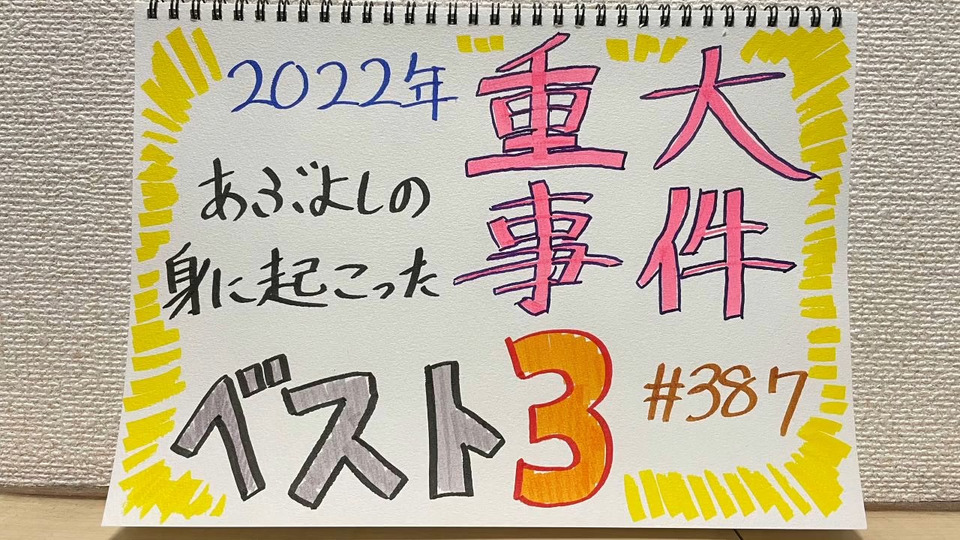 2022年
あぶよしの
身に起こった
重大
事件
ベスト3
#387